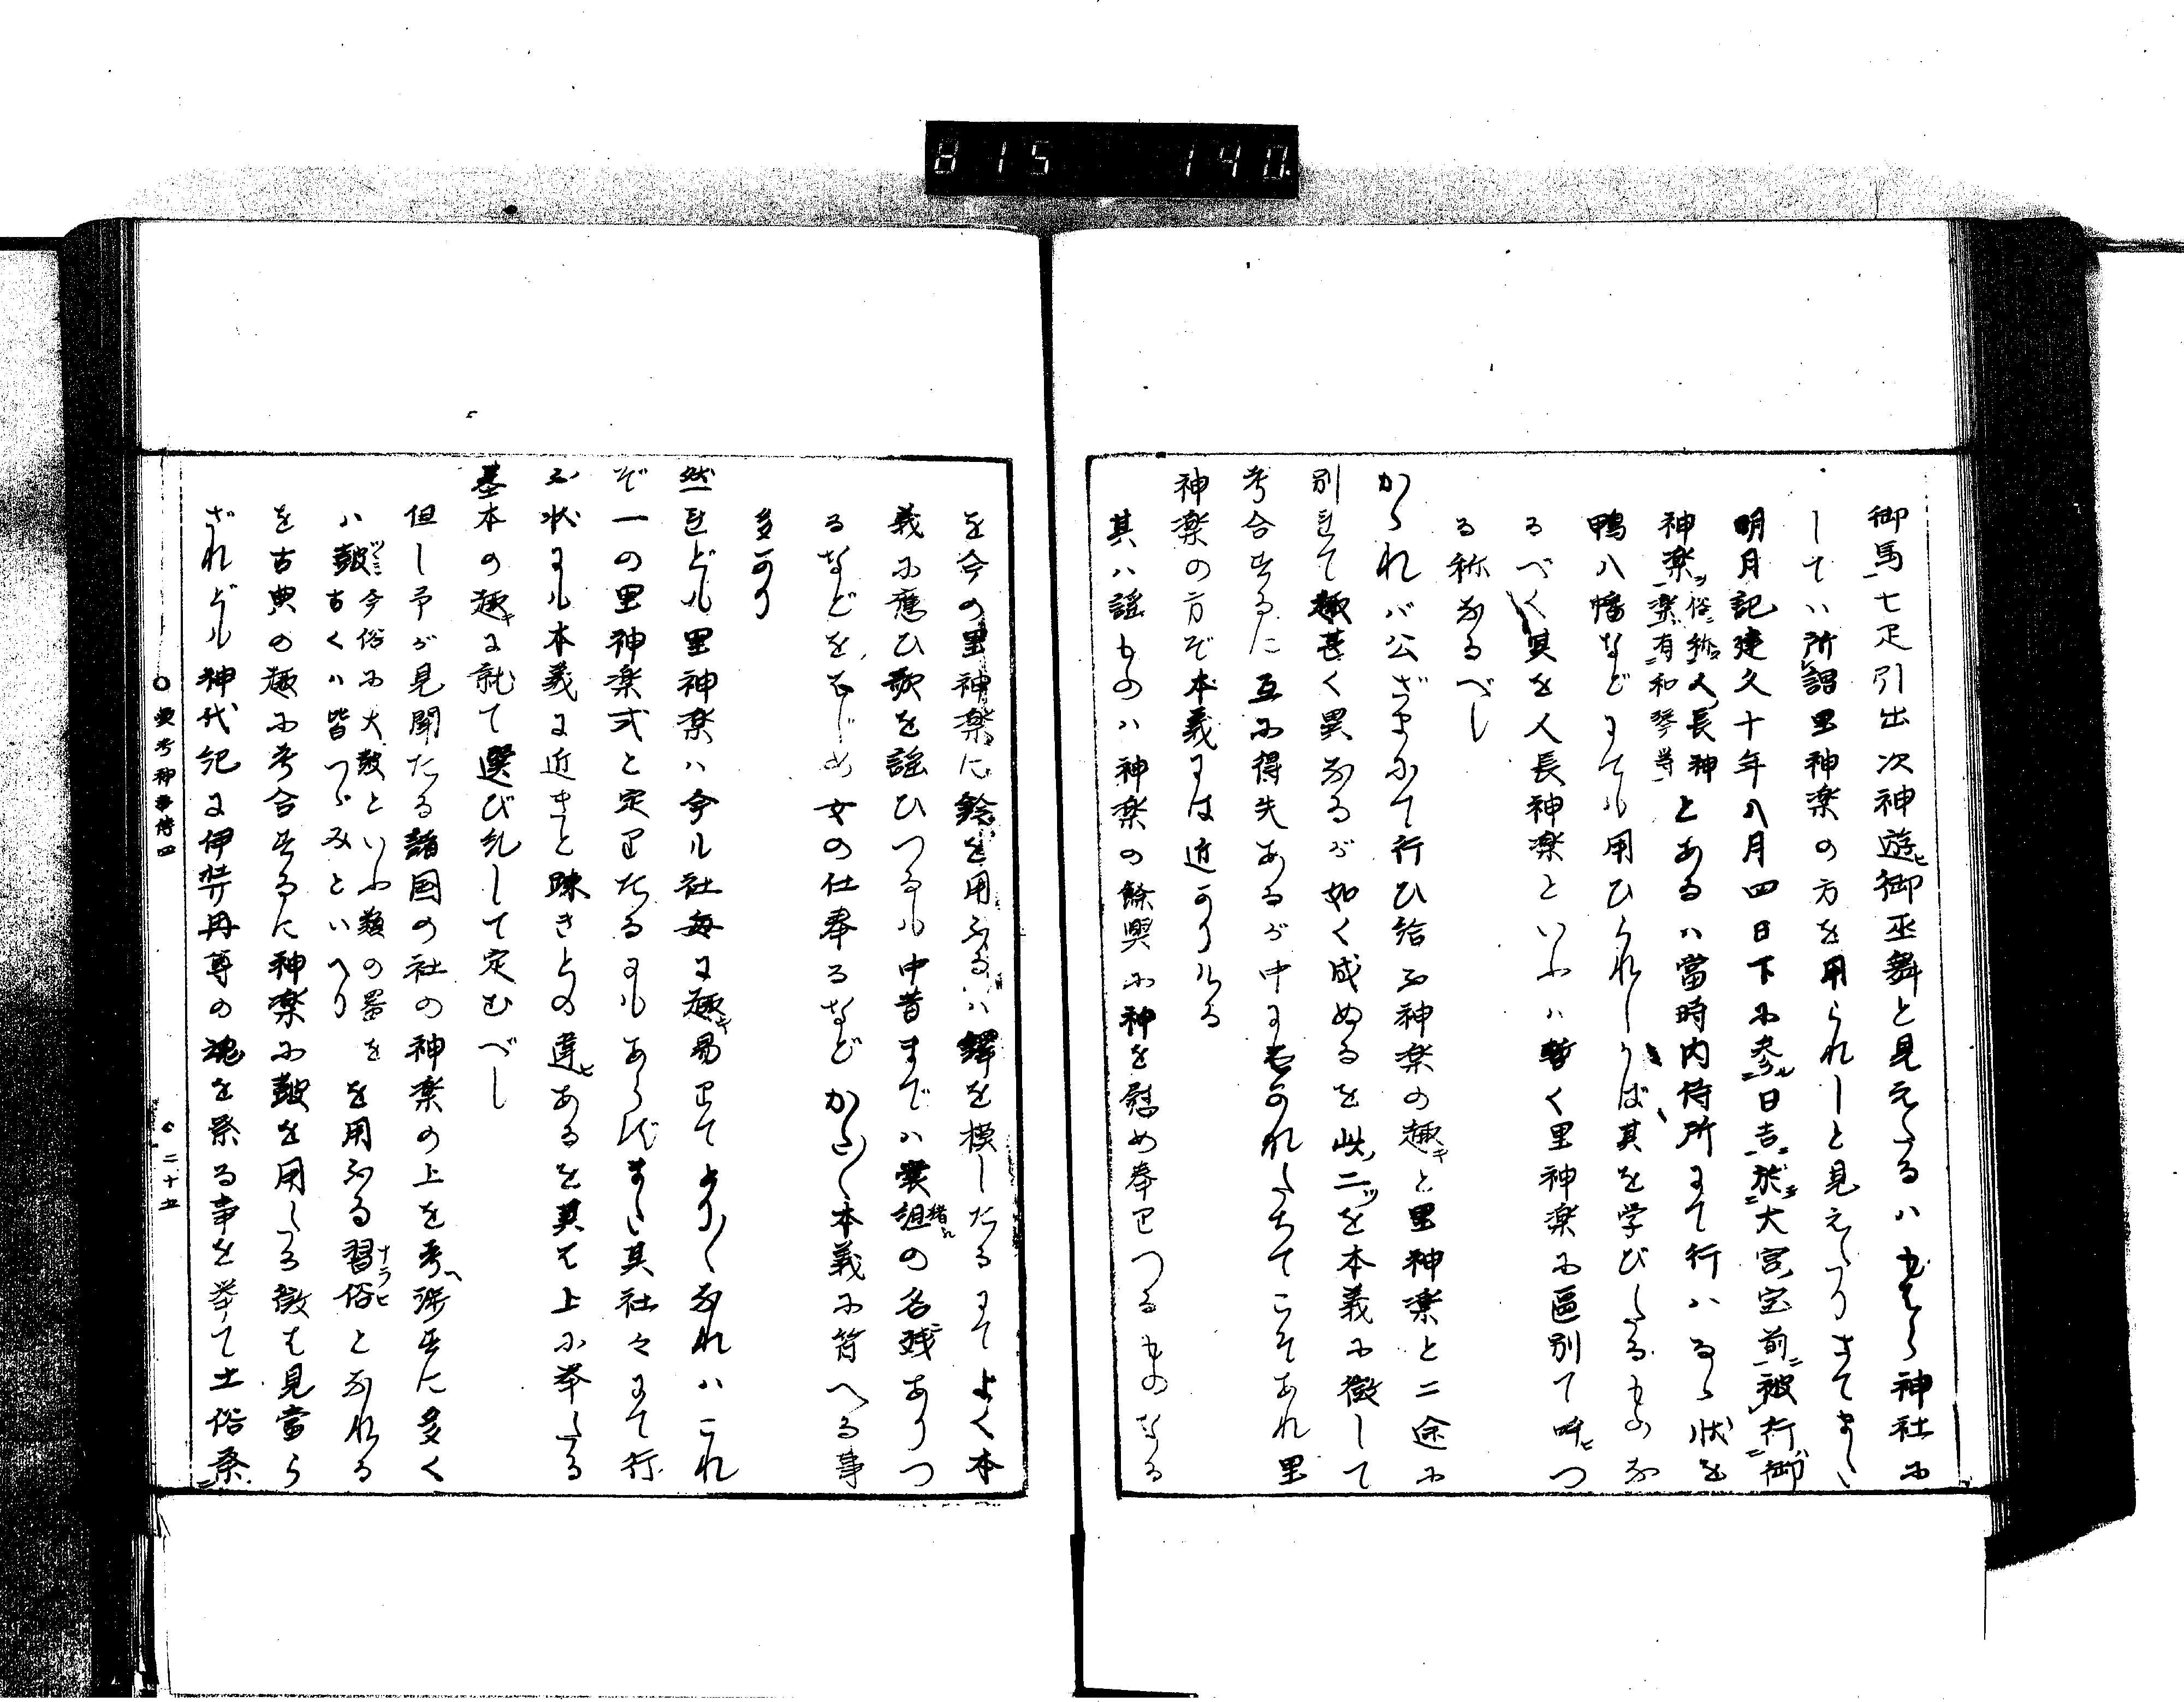 815 140
御馬一七疋引出次神遊ヒ御巫舞と見えたるハもはら神社に
してハ所謂里神楽の方を用られしと見えたりさてまた
明月記建久十年八月四日下に参ル二日吉ニ於テ二大宮宝前ニ一被行二御
神楽ヲ一俗ニ称ス人長神楽ト一有和琴等とあるハ當時内侍所にて行ハるゝ状を
鴨八幡などにても用ひられしかば其を学びたるものな
るべく其を人長神楽といふハ暫く里神楽に區別て呼ヒつ
る称なるべし
かゝれバ公ざまにて行ひ給ふ神楽の趣キと里神楽と二途に
別ヒて趣甚く異なるが如く成ぬるを此二ツを本義に徴して
考合するに互に得失あるが中に
神楽の方ぞ本義には近かりける
其ハ謡ものハ神楽の餘興に神を慰め奉りつるものなる
を今の里神楽に鈴を用ふるハ鐸を模したるにてよく本
義に應ひ歌を謡ひつるも中昔までハ裳の名残ありつ
るなどをはじめ女の仕奉るなどかた〱本義に符へる事
多かり
然ヒども里神楽ハ今も社毎に趣キ易りてより〱なれハこれ
ぞ一の里神楽式と定りたるにもあらずまた其社々にて行
ふ状にも本義に近きと疎きとの違ヒあるを其も上に挙たる
基本の趣キに就て選び糺して定むべし
但し予が見聞たる諸国の社の神楽の上を考ヘ渉すに多く
ハ鼓ツヾミ今俗に大鼓といふ類の器を古くハ皆つゞみといへりを用ふる習俗ナラヒとなれる
を古典の趣に考合するに神楽に鼓を用たる徴も見當ら
ざれども神代紀に伊弉冉尊の魂を祭る事を挙て土俗祭二
神事傳四 ○二十五